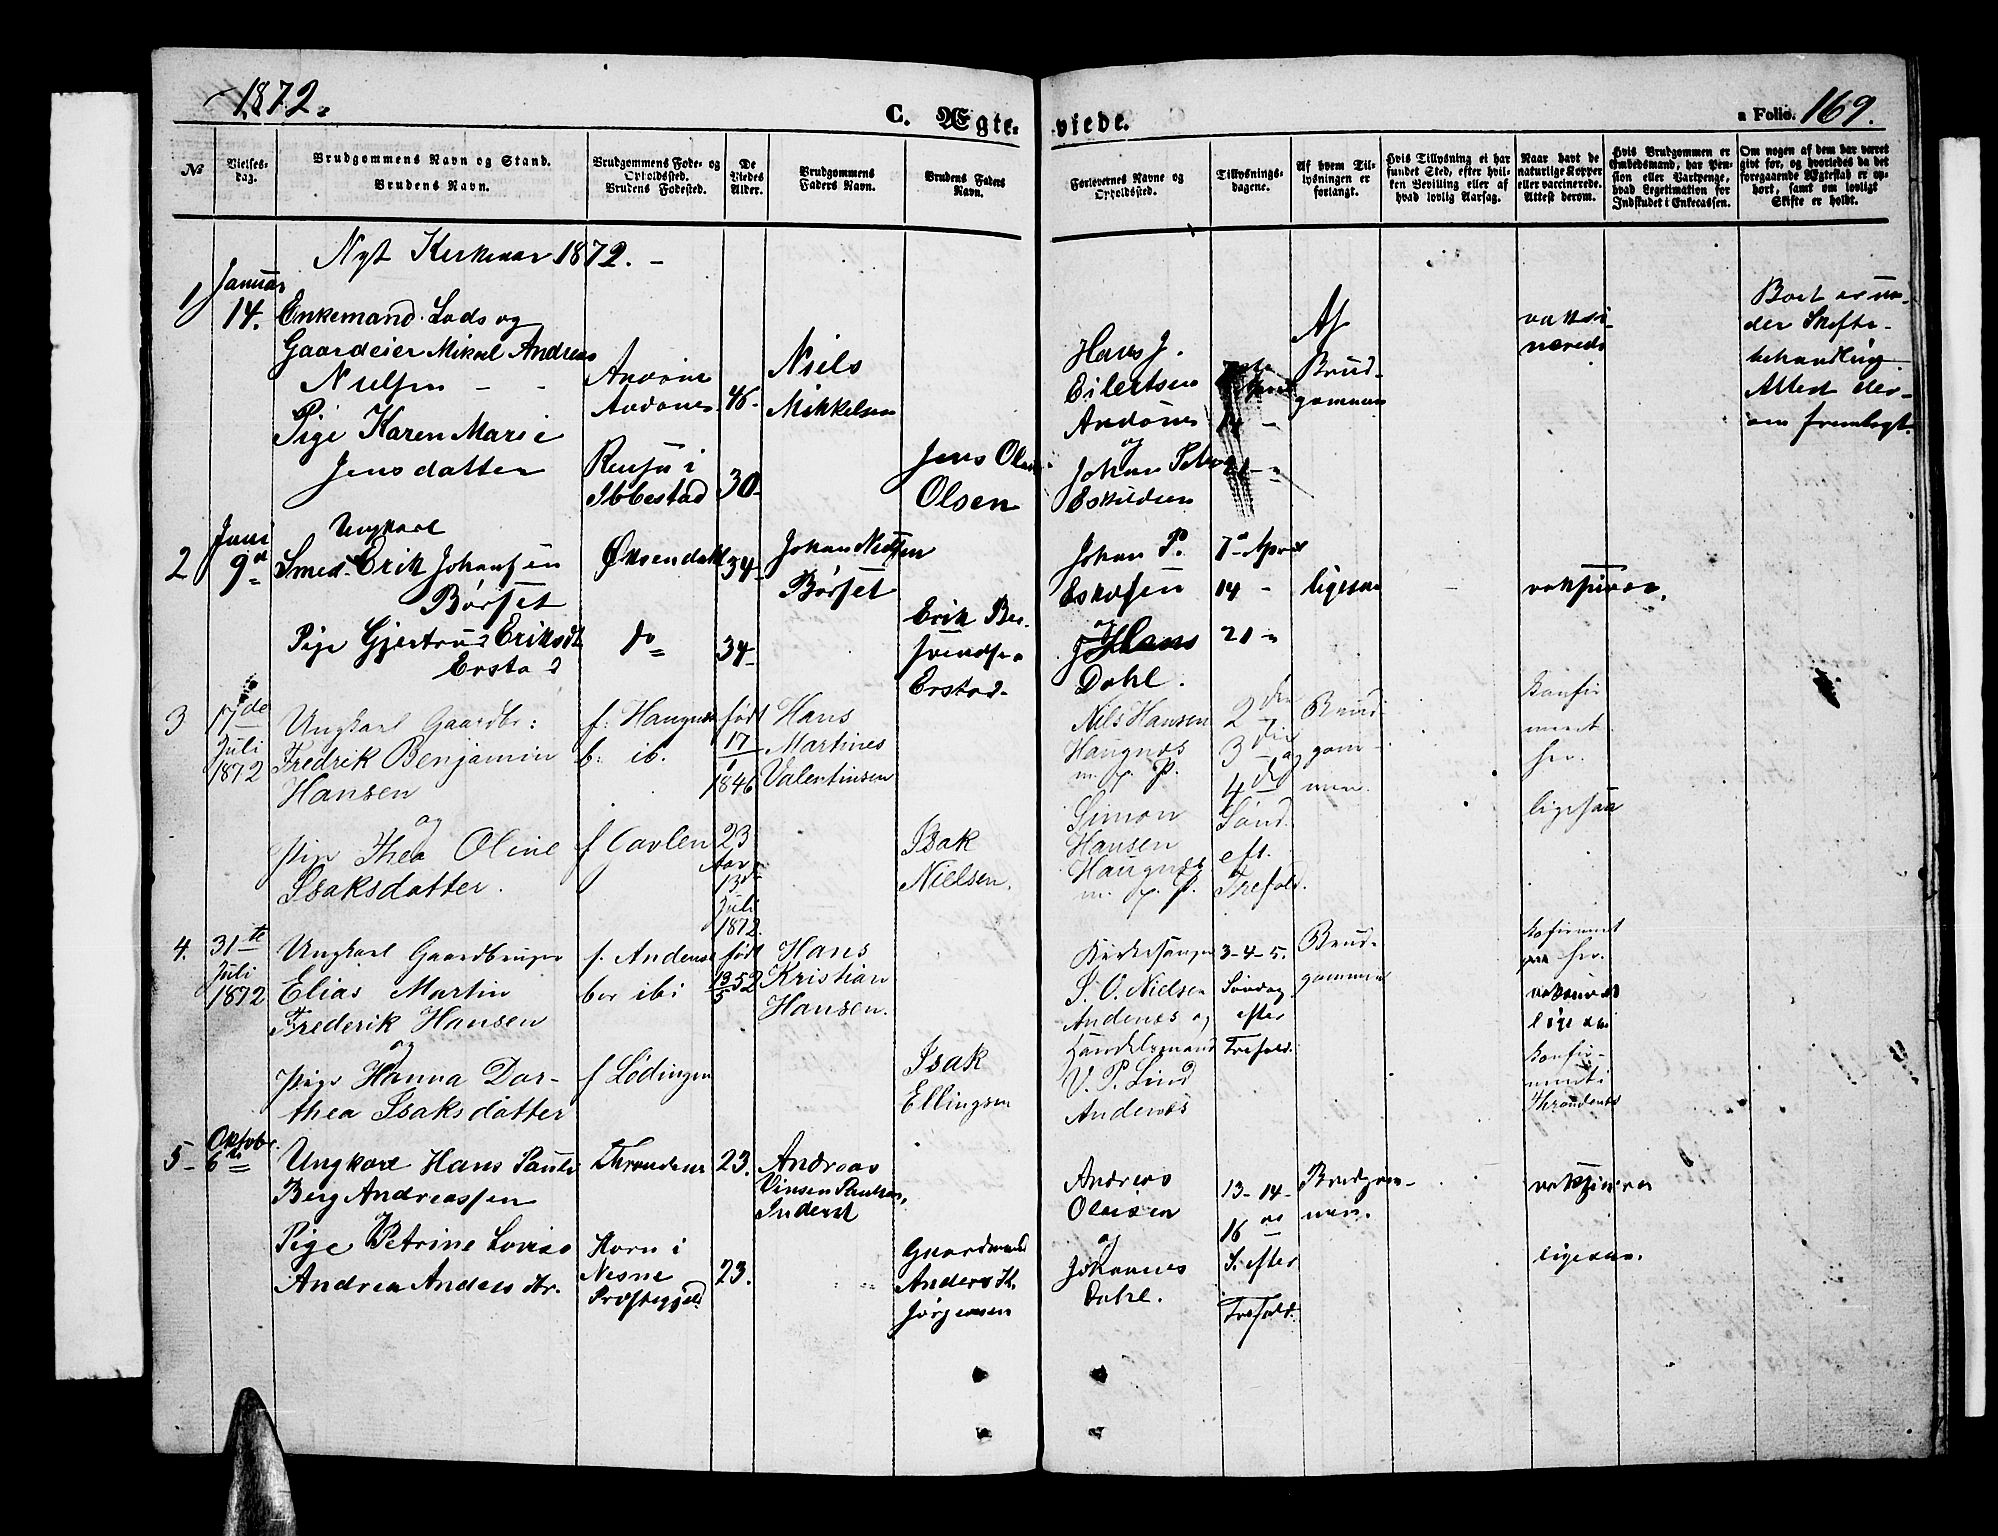 1872.
C. Ægte-
viede.
a Folio. 169.
№
Vielses-
dag.
Brudgommens Navn og Stand.
Brudens Navn.
Brudgommens Føde- og
Opholdssted.
Brudens Fødested.
De
Viedes
Alder.
Brudgommens
Faders Navn.
Brudens Faders
Navn.
Forlovernes Navne og
Opholdssted.
Tillysnings-
dagene.
Af hvem Til-
lysningen er
forlangt.
Hvis Tillysning ei har
fundet Sted, efter hvil-
ken Bevilling eller af
hvad lovlig Aarsag.
Naar havt de
naturlige Kopper
eller vaccinerede.
Attest derom.
Hvis Brudgommen er
Embedsmand, har Pen-
sion eller Vartpenge,
hvad Legitimation for
Indskudet i Enkecassen.
Om nogen af dem har været
givt for, og hvorledes da det
foregaaende Ægteskab er op-
hørt, samt om lovligt
Skifte er holdt.
Nyt Kirkeaar 1872. -
1
Januar
14.
Enkemand. Lods og
Gaardeier Mikal Andreas
Nielsen
Pige Karen Marie
Jensdatter
Andønes
Ibbestad
46.
30
Niels
Mikkelsen
Jens Olai
Olsen
Hans J.
Eilertsen
Andønes
og
Johan Peter
Eskildsen
14 -
Af
Brud-
gommen
vaksi-
nerede
Boet er un-
der Skifte-
behandling
Attest der-
om fremlagt.
2
Juni
9de
Ungkarl
Smed Erik Johansen
Børset
Pige Gjertrud Eriksdt
Erstad
Øksendahl
do
34
34
Johan Nielsen
Børset
Erik Ber-
Erstad.
Johan P.
Eskelsen
og
Hans
Dahl.
7de April
14 -
21 -
ligesaa
3
17de
Juli
1872
Ungkarl Gaardbr:
Fredrik Benjamin
Hansen
og
pige Thea Oline
Isaksdatter.
f: Haugnæs
b: ib.
født
17
1
1846
23
Aar
13de
Juli
1872.
Hans
Martines
Valentinsen
Isak
Nielsen.
Nils Hansen
Haugnæs
m. f. P.
Simon
Hansen
Haugnæs
m. f. P.
2den
3die og
4de
Sønd.
eft.
Trefold.
Brud
gom-
men.
konfir
meret
her.
ligesaa
4.
31te
Juli
1872
Ungkarl Gaardbruger
Elias Martin
Frederik Hansen
og
pige Hanna Dor-
thea Isaksdatter
f. Andenæs
bor ibi
f Lødingen
født
13/5 52
Hans
Kristian
Hansen.
Isak
Ellingsen
Kirkesanger
S. O. Nielsen
Andenæs og
Handelsmand
V. P. Lind
Andenæs
3-4-5.
Søndag
efter
Trefold.
Brud-
gommen
her.
konfir-
Throndenæs
5-
Oktober
6te
Ungkarl Hans Pauls
Berg Andreassen
Pige Petrine Lovise
Andrea Anders dtr.
Throndenæs
Nesne
Præstegjeld
23.
23.
Andreas
Inderst
Gaardmand
Anders K.
Jørgensen
Andreas
Olaisen
og
Johannes
Dahl.
13- 14-
16de
S. efter
Trefold.
Brudgom-
men.
ligesaa.